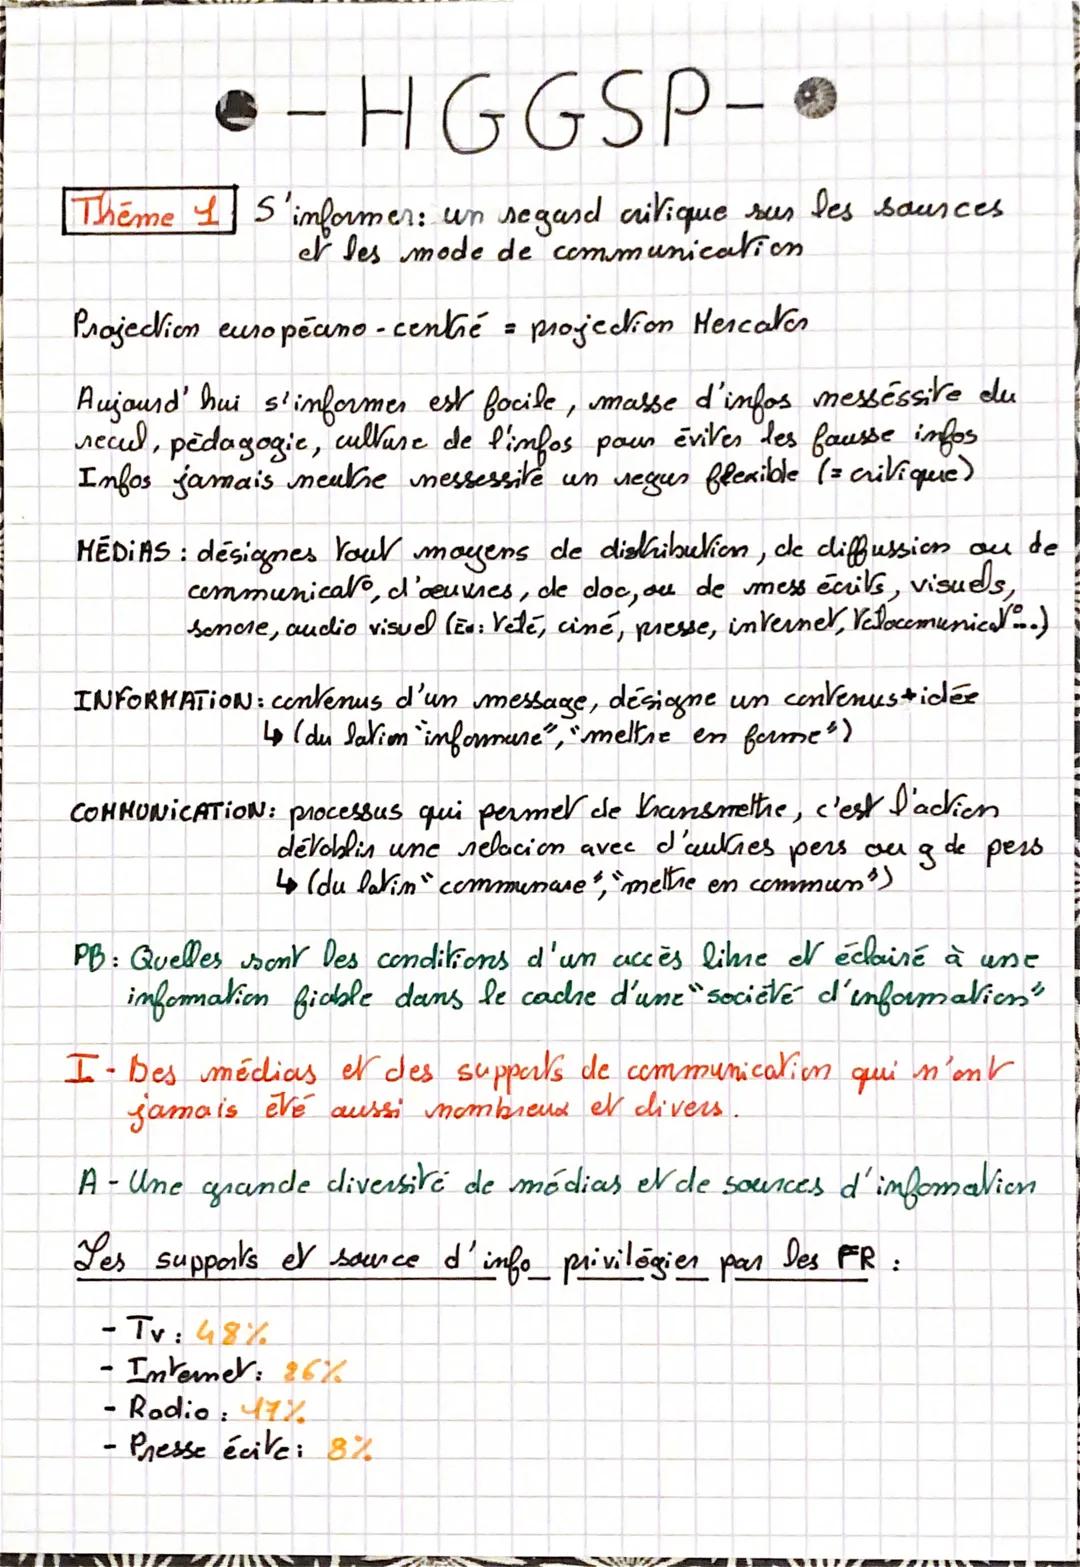 - HGGSP -
Thème 1 S'informer: un regard critique sur les sources
et les mode de communication
Projection européano-centré = projection Mercator
Aujourd'hui s'informer est facile, masse d'infos nesséssite du
recul, pédagogie, culture de l'infos pour éviter les fausse infos
Infos jamais neutre nessessité un regar flexible (= critique)
MÉDiAS : désignes tout moyens de distribution, de diffussion ou de
communicat°, d'œuvres, de doc, ou de mess écrits, visuels,
sonore, audio visuel (Ex: télé, ciné, presse, internet, télocomunicat°...)
INFORMATiON: contenus d'un message, désigne un contenus + idée
↳ (du lation "informare", "mettre en forme")
COMMUNiCATiON: processus qui permet de transmettre, c'est l'action
détablir une relacion avec d'autres pers ou g de pers
↳ (du latin "communare", "mettre en commun")
PB: Quelles sont les conditions d'un accès libre et éclairé à une
information fiable dans le cadre d'une "société d'information"
I - Des médias et des supports de communication qui n'ont
jamais été aussi nombreux et divers.
A - Une grande diversité de médias et de sources d'infomation
Les supports et source d'info privilégier par les FR :
- Tv : 48%
- Internet: 26%
- Radio : 17%
- Presse écite: 8%